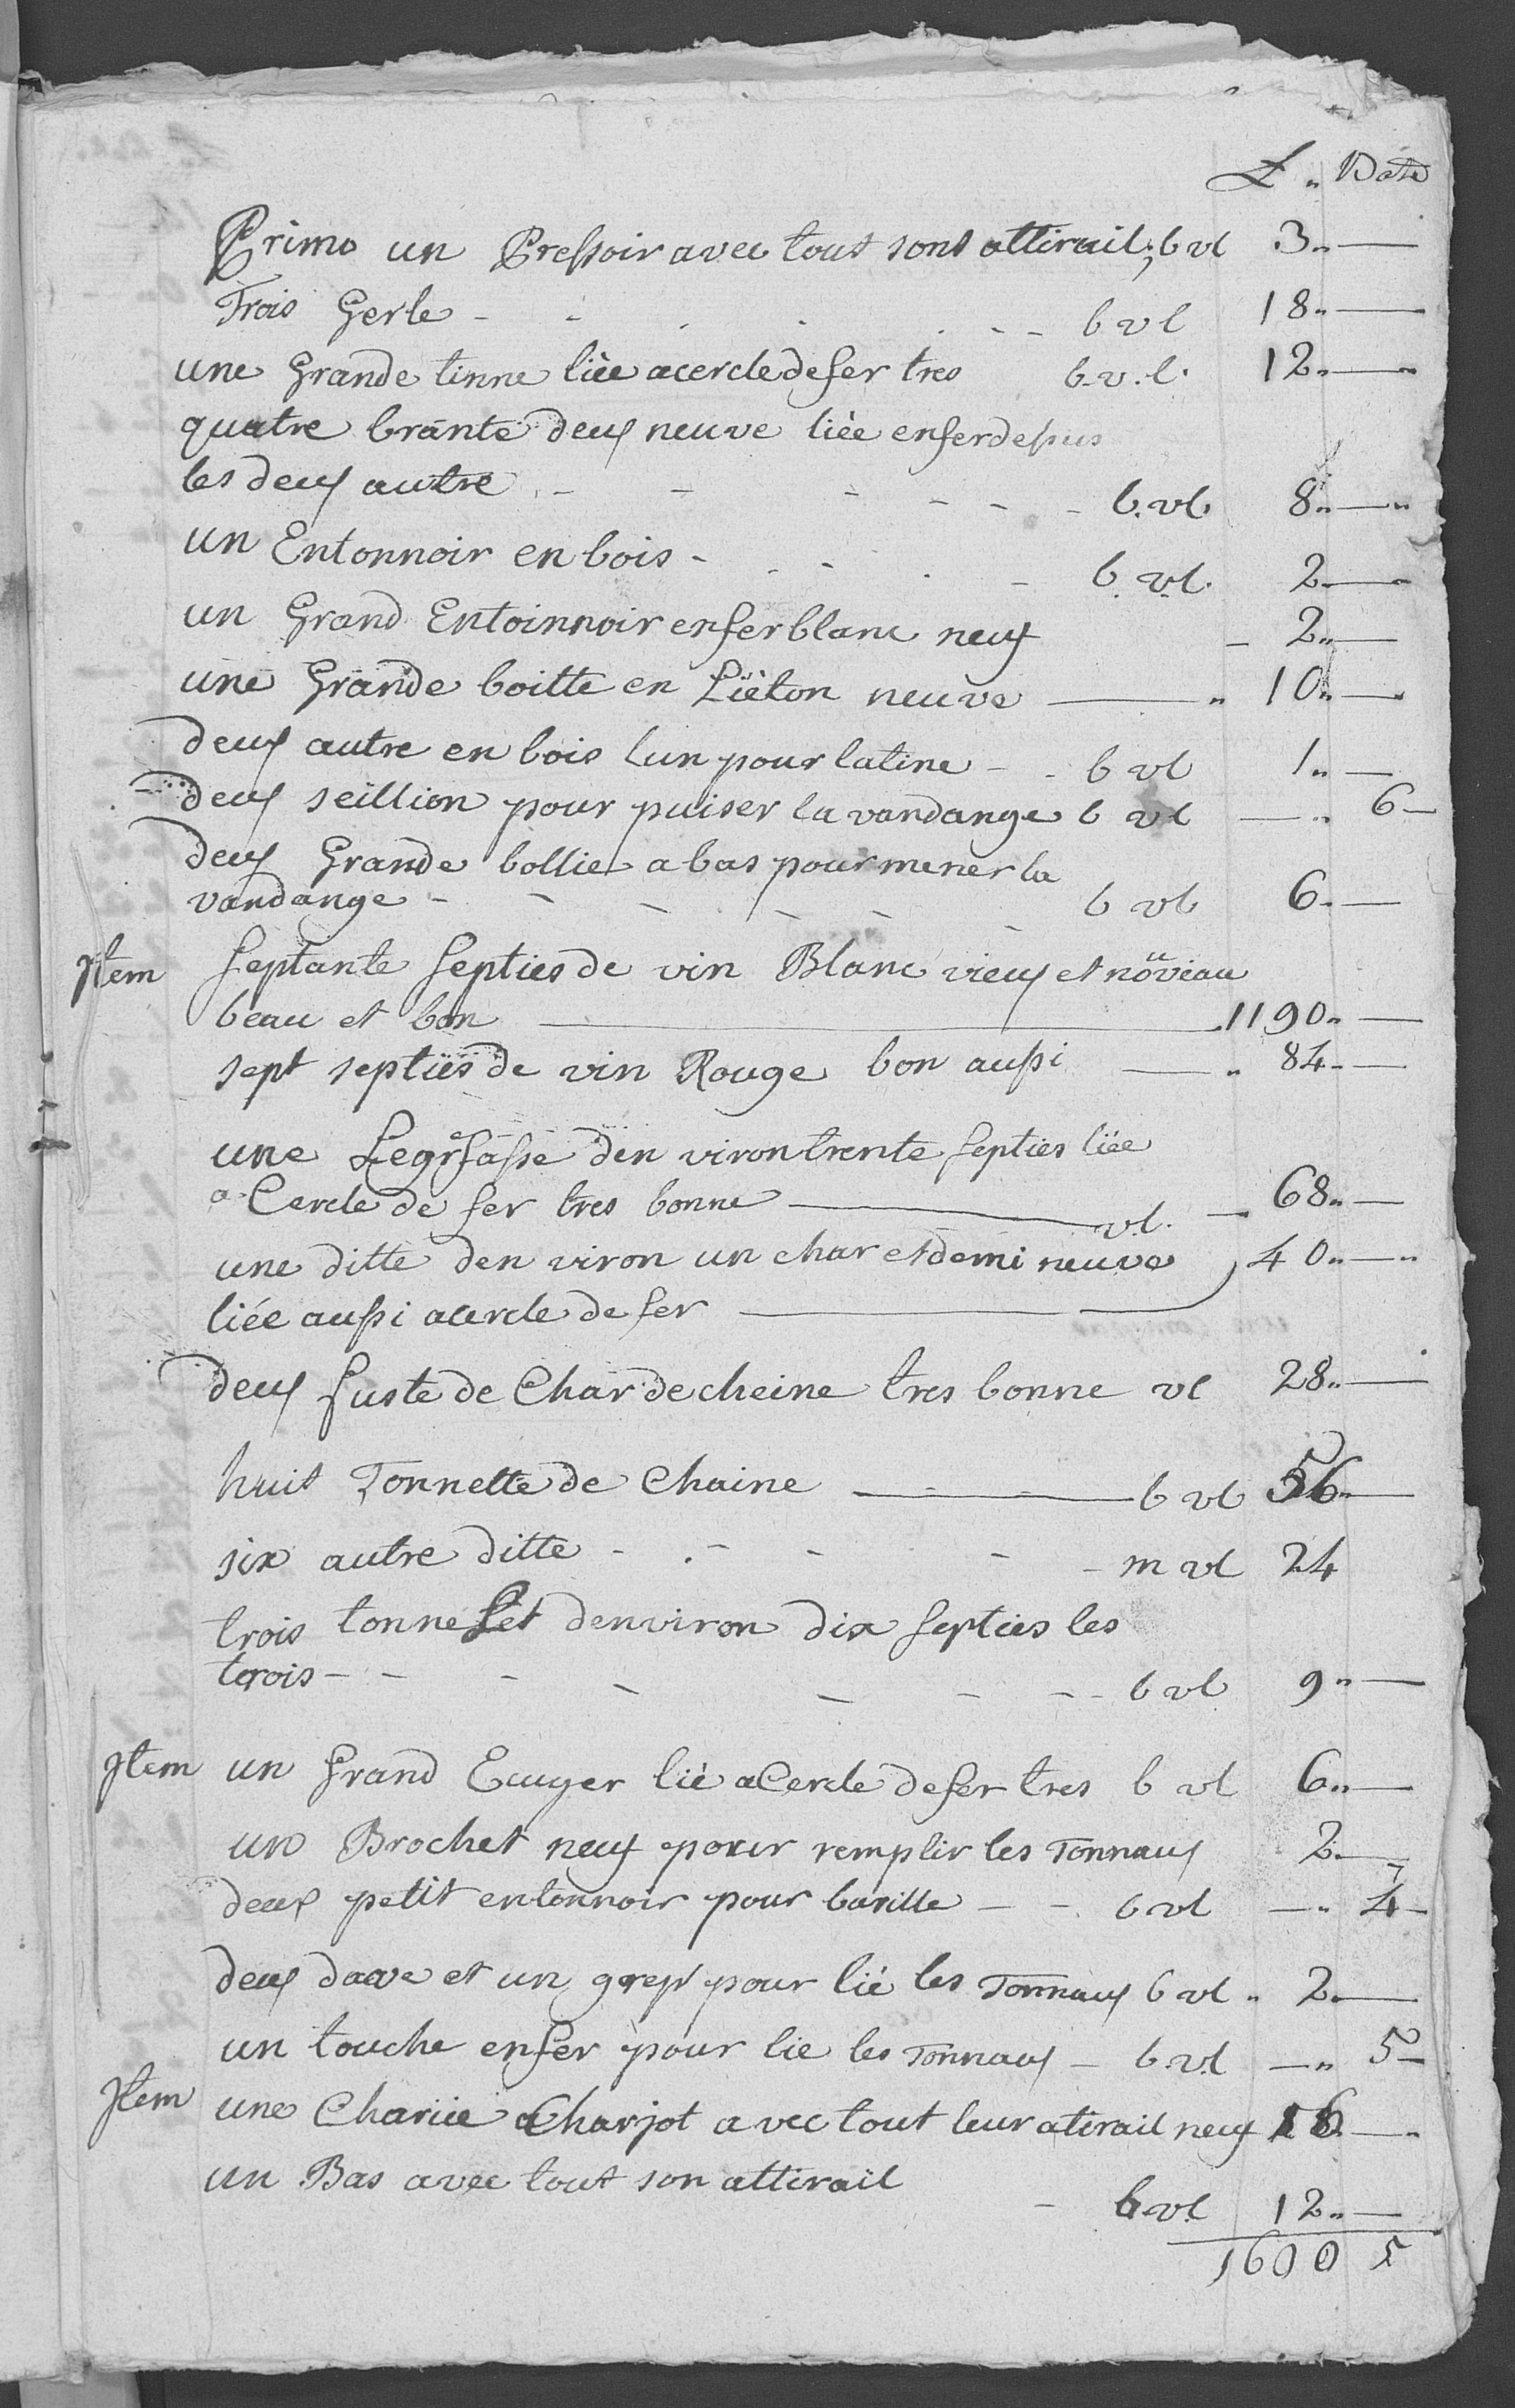 L „ Batz
Primo un Pressoir avec tout sont attirail; b vl 3„ —
Trois Gerle - - - - b vl 18„ —
une Grande tinne liée a cercle de fer tres b. v. l. 12„ —
quatre brante deux neuve liée en fer depus
les deux autre - - - - b. vl 8„ —
un Entonnoir en bois - - - - b. vl. 2 —
un Grand Entoinnoir en fer blanc neuf - 2„ —
une Grande boitte en Liëton neuve — „ 10„ —
deux autre en bois lun pour latine - - b vl 1„ —
deux seillion pour puiser la vandange b vl — „ 6 -
deux Grande bollie a bas pour mener la
vandange - - - - - b vl 6 . —
Item Septante Septies de vin Blanc vieux et nouveau
beau et bon — 1190„ —
sept septies de vin Rouge bon aussi — „ 84 - —
une Legrefasse den viron trente septies liée
a Cercle de fer tres bonne — vl. - 68„ —
une ditte den viron un char et demi neuve 40„ —
liée aussi a cercle de fer —
deux fuste de Char de cheine tres bonne vl 28„ —
huit Tonnette de Chaine — b vl 56„ —
six autre ditte - - - - m vl 24
trois tonnelet denviron dix septies les
trois - - - - - - b vl 9„ —
Item un Grand Ecuyer lié a Cercle de fer tres b vl 6„ —
un Brochet neuf pour remplir les Tonnaux 2 —
deux petit entonnoir pour barille - - b vl — „ 4 -
deux dave et un grept pour lié les Tonnaux b vl „ 2 —
un touche en fer pour lie les Tonnaux - b. vl — „ 5 -
Item une Chariie a Charjot avec tout leur atirail neuf 16 —
un Bas avec tout son attirail
- b vl 12„ —
1600 5